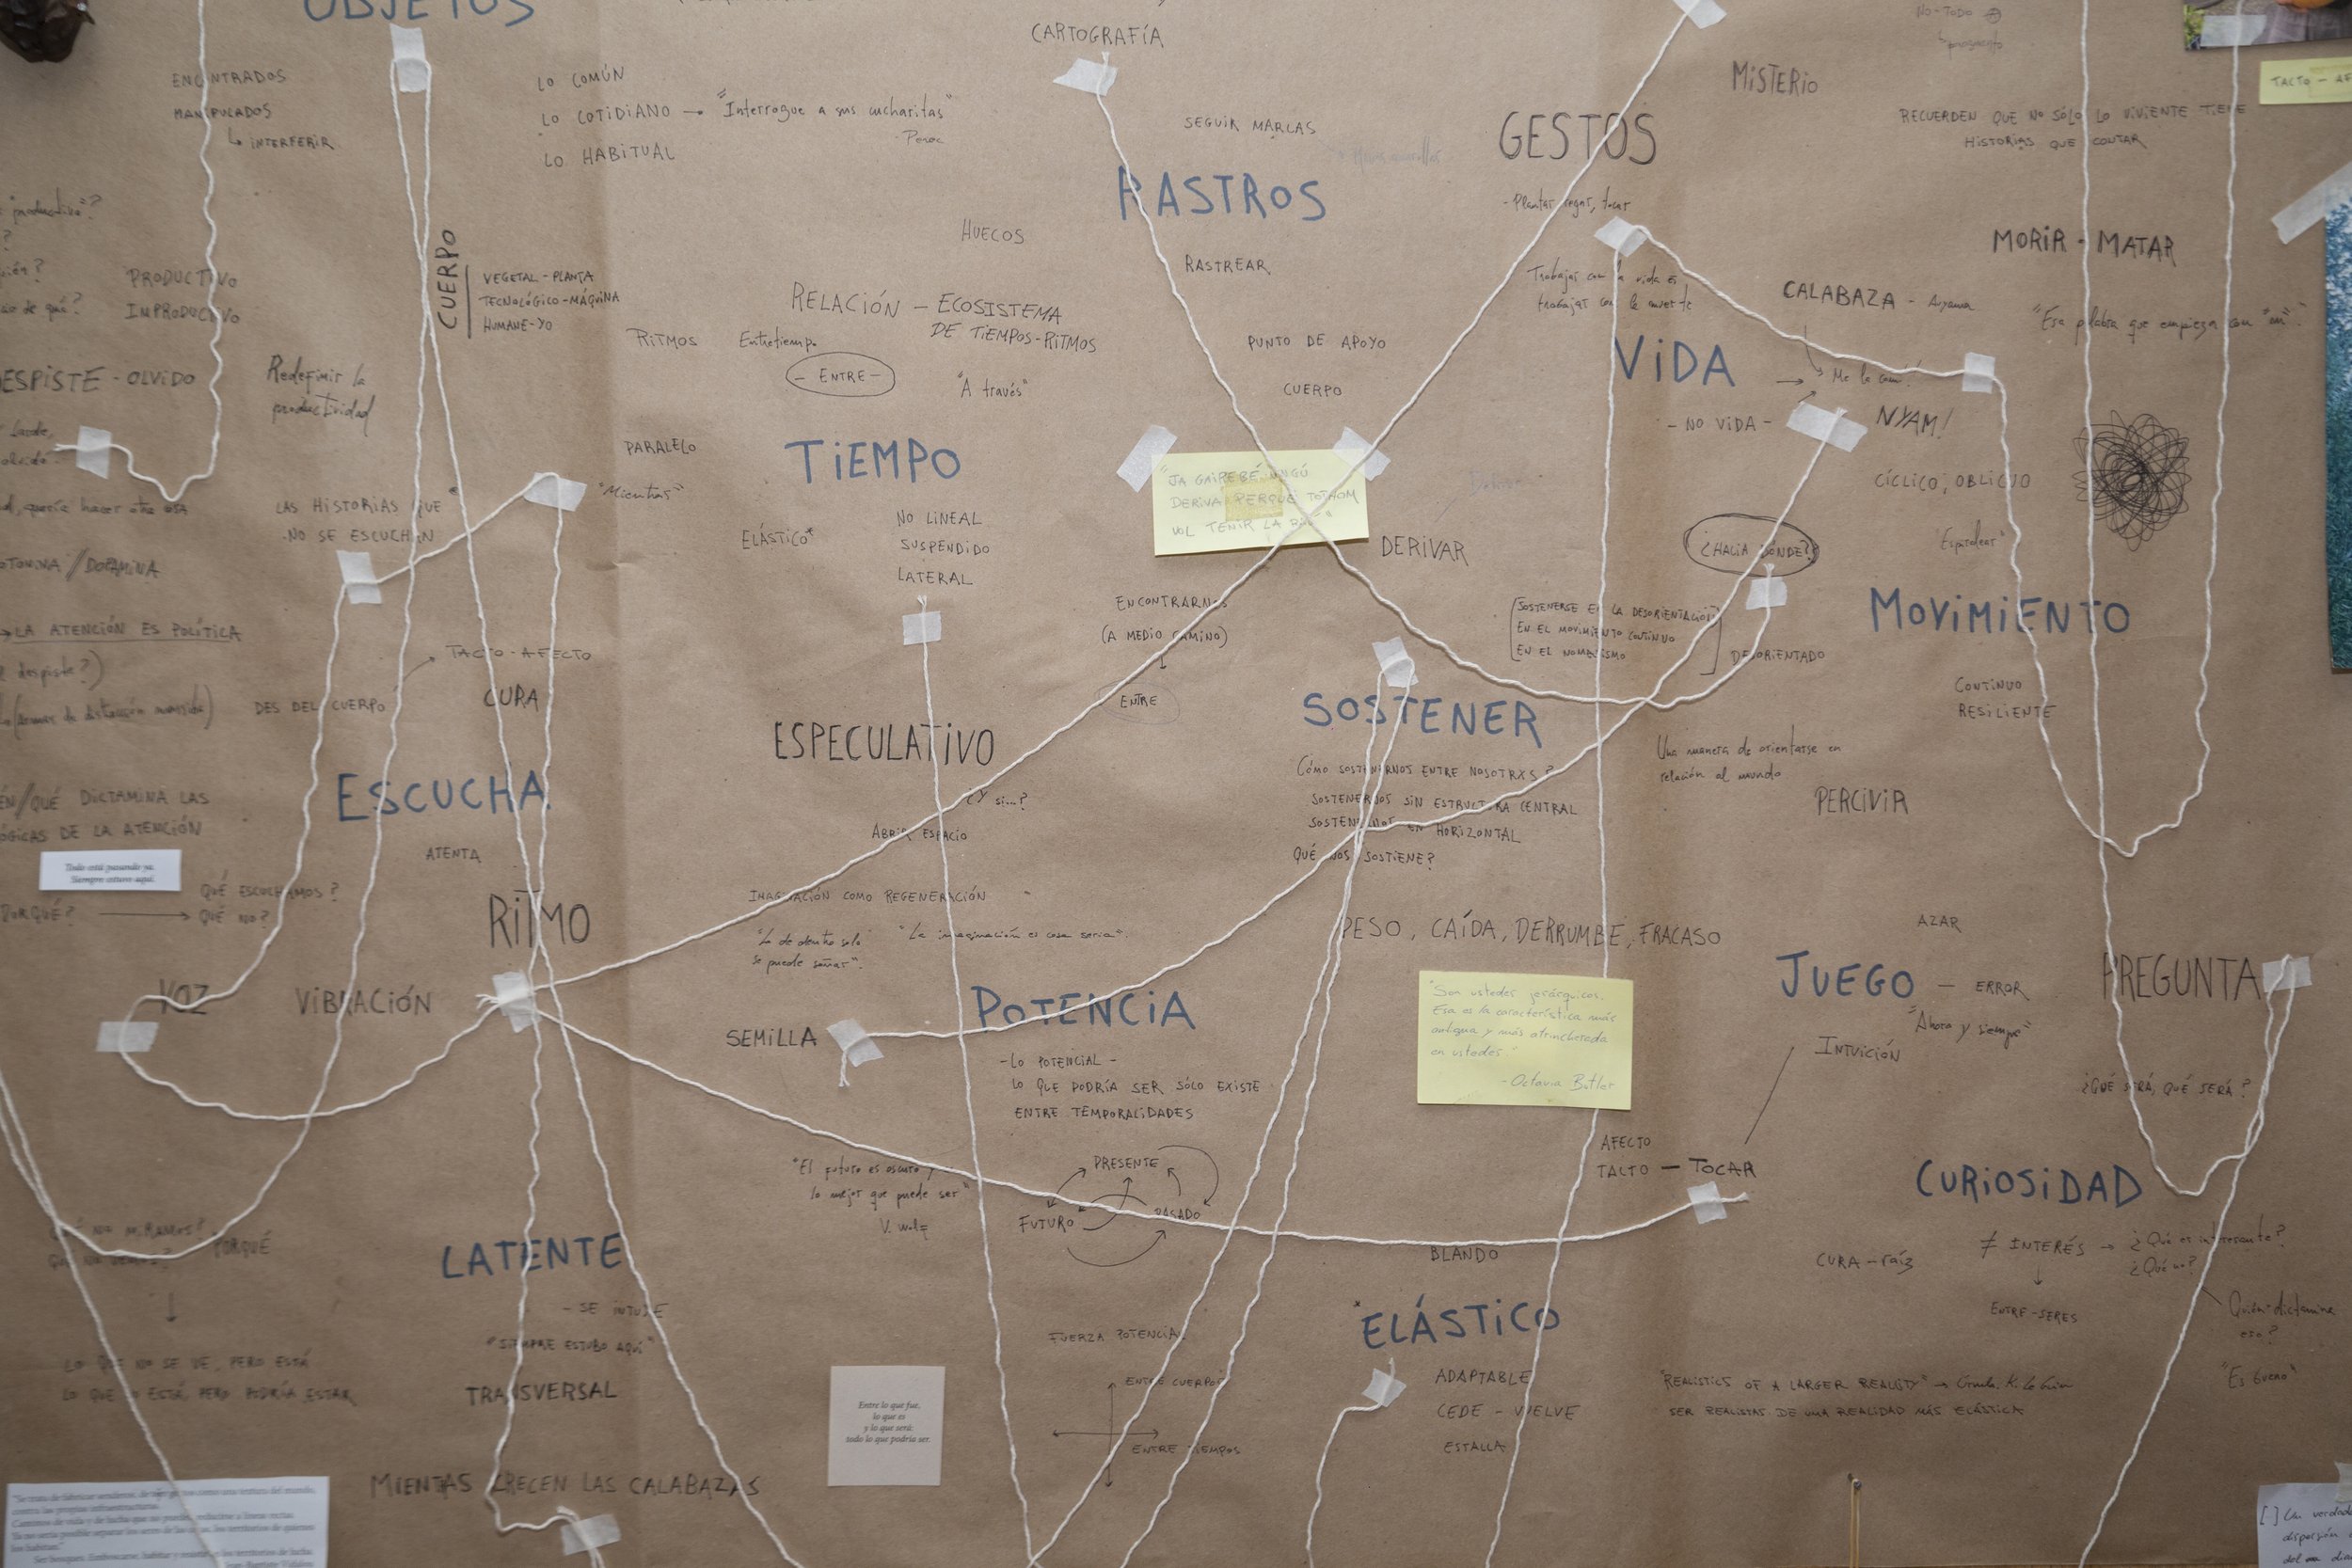 OBJETOS
ENCONTRADOS
MANIPULADOS
↳ INTERFERIR
LO COMÚN
LO COTIDIANO → "Interrogue a sus cucharitas"
Perec
LO HABITUAL
CARTOGRAFÍA
SEGUIR MARCAS
RASTROS
HUECOS
RASTREAR
PUNTO DE APOYO
CUERPO
GESTOS
- Plantar, regar, tocar
Trabajar con la vida es
trabajar con la muerte
MISTERIO
NO-TODO
RECUERDEN QUE NO SÓLO LO VIVIENTE TIENE
HISTORIAS QUE CONTAR
TACTO - AF
MORIR - MATAR
CALABAZA - Auyama
"Esa palabra que empieza con "m"."
VIDA
→ Me la comí!!
- NO VIDA -
NYAM!
CÍCLICO, OBLICUO
¿HACIA DÓNDE?
MOVIMIENTO
[SOSTENERSE EN LA DESORIENTACIÓN
EN EL MOVIMIENTO CONTINUO
EN EL NOMADISMO]
DESORIENTADO
CONTINUO
RESILIENTE
Una manera de orientarse en
relación al mundo
PERCIVIR
"productiva"?
PRODUCTIVO
IMPRODUCTIVO
CUERPO
VEGETAL - PLANTA
TECNOLÓGICO - MÁQUINA
HUMANE - YO
ESPISTE - OLVIDO
Redefinir la
productividad
LAS HISTORIAS QUE
NO SE ESCUCHAN
quería hacer otra cosa
OTONINA // DOPAMINA
→ LA ATENCIÓN ES POLÍTICA
despiste?)
TACTO - AFECTO
DES DEL CUERPO
CURA
RELACIÓN - ECOSISTEMA
DE TIEMPOS-RITMOS
RITMOS
Entretiempo
- ENTRE -
"A través"
PARALELO
"Mientras"
TIEMPO
ELÁSTICO*
NO LINEAL
SUSPENDIDO
LATERAL
"JA GAIREBÉ NINGÚ
DERIVA PERQUÈ TOTHOM
VOL TENIR LA RAÓ"
DERIVAR
ENCONTRARNOS
(A MEDIO CAMINO)
ENTRE
ESPECULATIVO
¿Y si...?
ABRIR ESPACIO
IMAGINACIÓN COMO REGENERACIÓN
"Lo de dentro solo
se puede soñar".
"La imaginación es cosa seria".
SOSTENER
Cómo SOSTENERNOS ENTRE NOSOTRXS?
SOSTENERNOS SIN ESTRUCTURA CENTRAL
SOSTENERNOS EN HORIZONTAL
QUÉ NOS SOSTIENE?
PESO, CAÍDA, DERRUMBE, FRACASO
"Son ustedes jerárquicos.
Esa es la característica más
antigua y más atrincherada
en ustedes."
- Octavia Butler
ESCUCHA
ÉN/QUÉ DICTAMINA LAS
ÓGICAS DE LA ATENCIÓN
ATENTA
Todo está pasando ya.
Siempre estuvo aquí.
QUÉ ESCUCHAMOS?
PORQUÉ? → QUÉ NO?
RITMO
VOZ
VIBRACIÓN
SEMILLA
POTENCIA
- LO POTENCIAL -
LO QUE PODRÍA SER SÓLO EXISTE
ENTRE TEMPORALIDADES
"El futuro es oscuro y
lo mejor que puede ser"
V. Woolf
PRESENTE
FUTURO
PASADO
FUERZA POTENCIAL
ENTRE CUERPOS
ENTRE TIEMPOS
AZAR
JUEGO - ERROR
"Ahora y siempre"
INTUICIÓN
PREGUNTA
¿QUÉ SERÁ, QUÉ SERÁ?
AFECTO
TACTO - TOCAR
CURIOSIDAD
CURA - raíz
≠ INTERÉS → ¿Qué es interesante?
¿Qué no?
ENTRE-SERES
Quién dictamina
eso?
"Es bueno"
BLANDO
*ELÁSTICO
ADAPTABLE
CEDE - VUELVE
ESTALLA
"REALISTICS OF A LARGER REALITY" → Ursula K. Le Guin
SER REALISTAS DE UNA REALIDAD MÁS ELÁSTICA
QUÉ NO MIRAMOS?
QUÉ NO VEMOS?
PORQUÉ
LO QUE NO SE VE, PERO ESTÁ
LO QUE NO ESTÁ, PERO PODRÍA ESTAR
LATENTE
- SE INTUYE
"SIEMPRE ESTUBO AQUÍ"
TRANSVERSAL
MIENTAS CRECEN LAS CALABAZAS
Entre lo que fue,
lo que es
y lo que será:
todo lo que podría ser.
Jean-Baptiste Vidalou
[.] Un verdad
dispersión